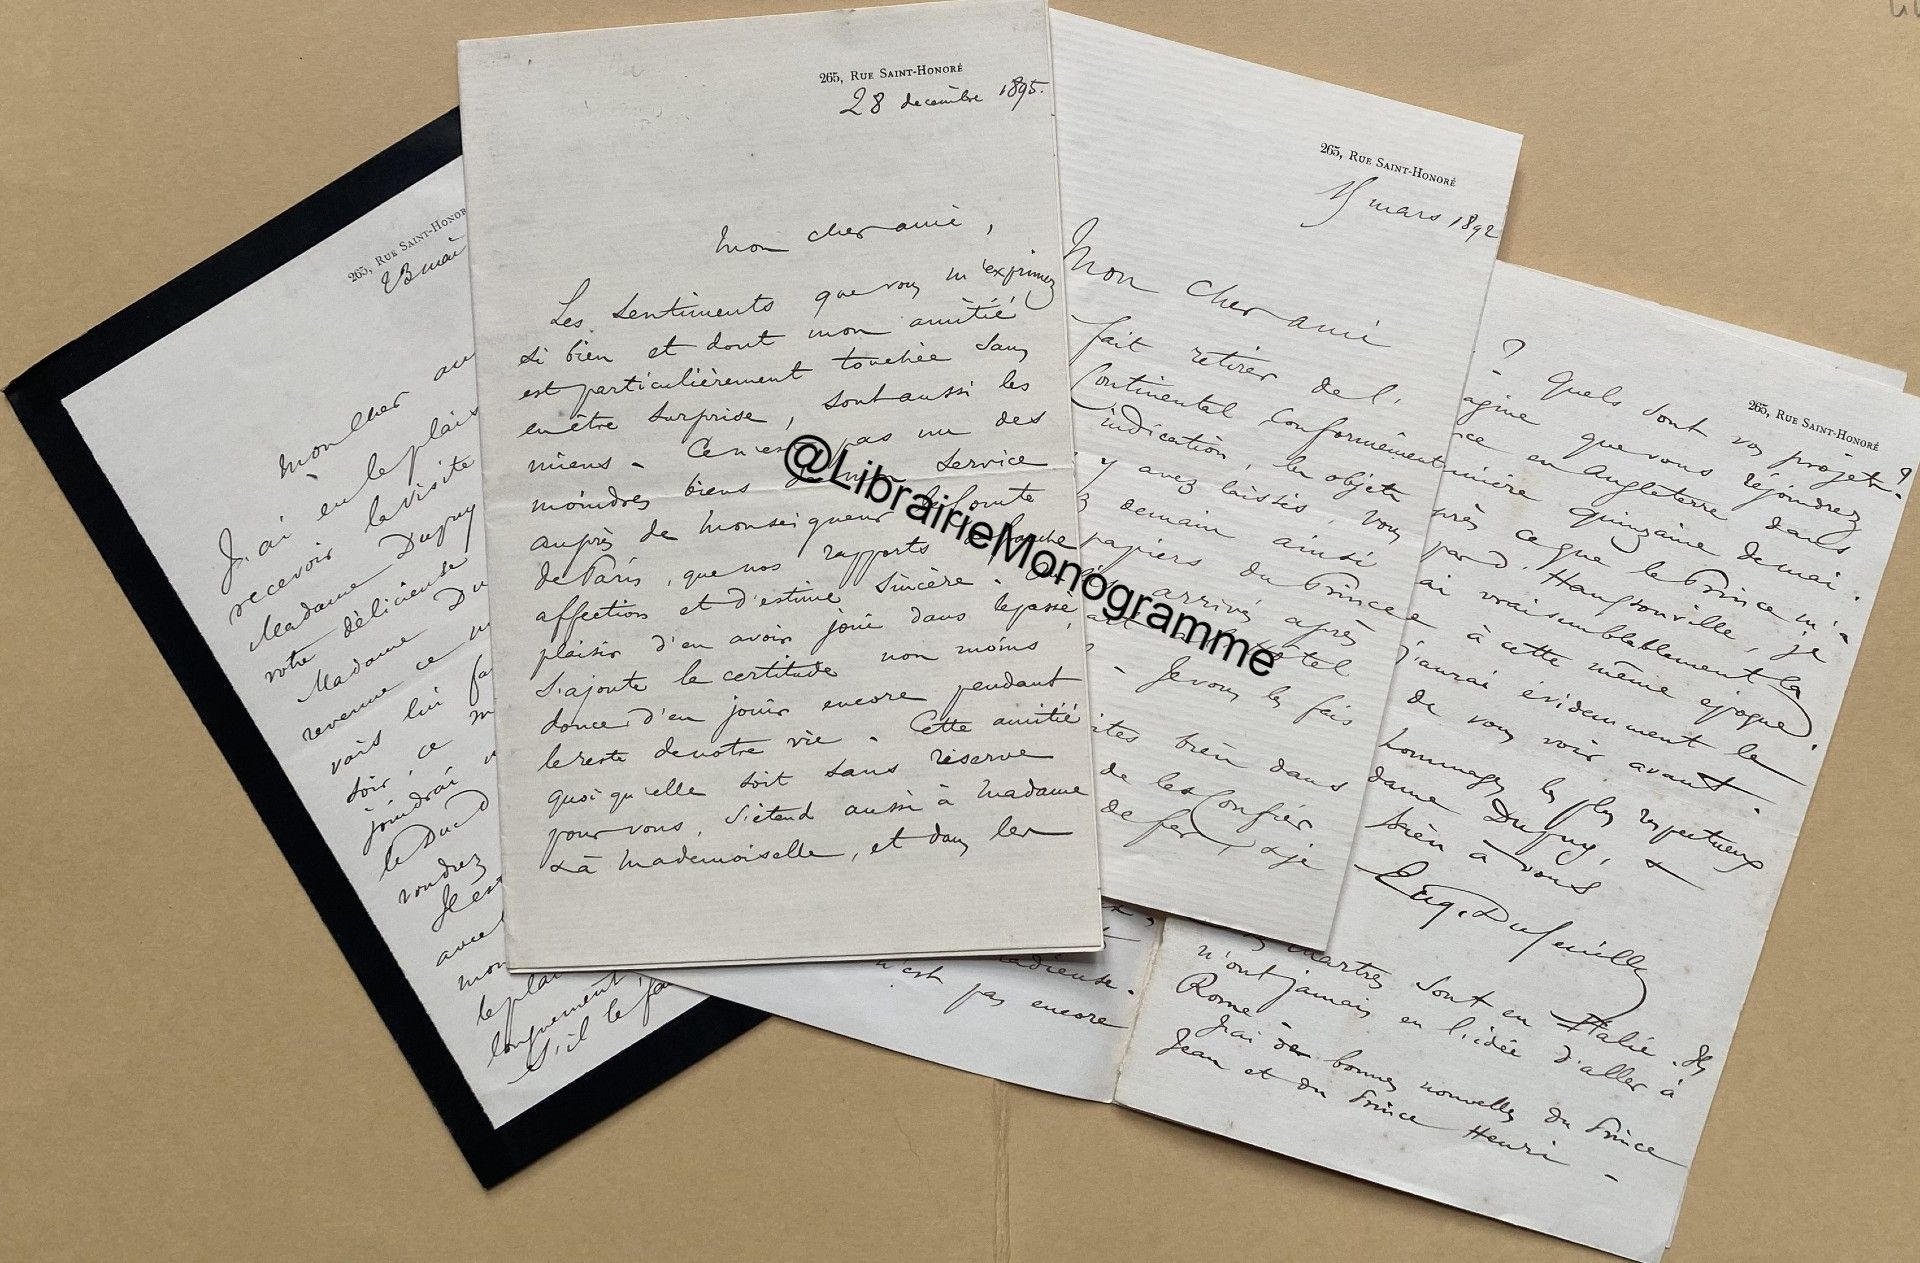 265, Rue Saint-Honoré
28 decembre 1895.
Mon cher ami,
Les sentiments que vous m'exprimez
si bien et dont mon amitié
est particulièrement touchée sans
en être surprise, sont aussi les
miens. Ce n'est pas un des
moindres biens service
auprès de Monseigneur le Comte
de Paris, que nos rapports
affection et d'estime sincère.
plaisir d'en avoir joui dans le passé,
s'ajoute la certitude non moins
douce d'en jouir encore pendant
le reste de notre vie. Cette amitié
quoiqu'elle soit sans réserve
pour vous, s'étend aussi à Madame
& à Mademoiselle, et dans les
@LibrairieMonogramme
265, Rue Saint-Honor
23 mai
Mon cher am
J'ai eu le plais
recevoir la visite
Madame Dupuy
votre délicieuse
Madame Du
revenue ce m
vais lui fa
soir ce m
joindrai
le Duc d
voudrez
Il est
avec
mon
le plai
longuement
S'il le fa
265, Rue Saint-Honoré
15 mars 1892
Mon cher ami
fait retirer de l'
Continental conformément
indication, les objets
y avez laissés. Vous
demain ainsi
papiers du Prince
arrivés après
hôtel
- Je vous les fais
ites bien dans
de les confier
de fer, & je
265, Rue Saint-Honoré
? Quels sont vos projets ?
agine que vous rejoindrez
ce en Angleterre dans
nière quinzaine de mai.
près ce que le Prince m'a
par d'Haussonville, je
ai vraisemblablement là
à cette même époque.
j'aurai évidemment le
de vous voir avant.
hommages les plus respectueux
dame Dupuy, &
bien à vous
Eug. Dufeuille
sont en Italie. Ils
n'ont jamais eu l'idée d'aller à
Rome.
J'ai de bonnes nouvelles du Prince
Jean et du Prince Henri -
radieuse.
n'est pas encore